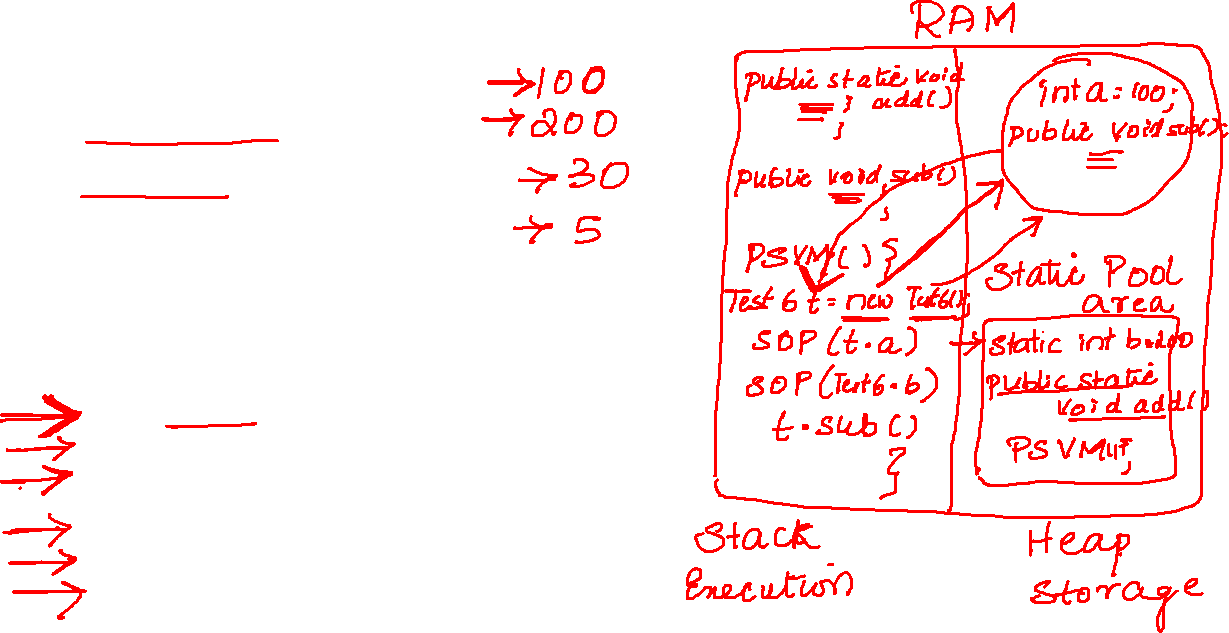 RAM
→100
→200
→30
→5
public static void
add()
;
public void sub()
;
PSVM() {
Test 6 t = new Test6();
SOP (t.a)
SOP (Test6.b)
t.sub()
}
int a = 100;
public void sub();
Static Pool
area
→ static int b=200
public static
void add()
PSVM
Stack
Execution
Heap
Storage